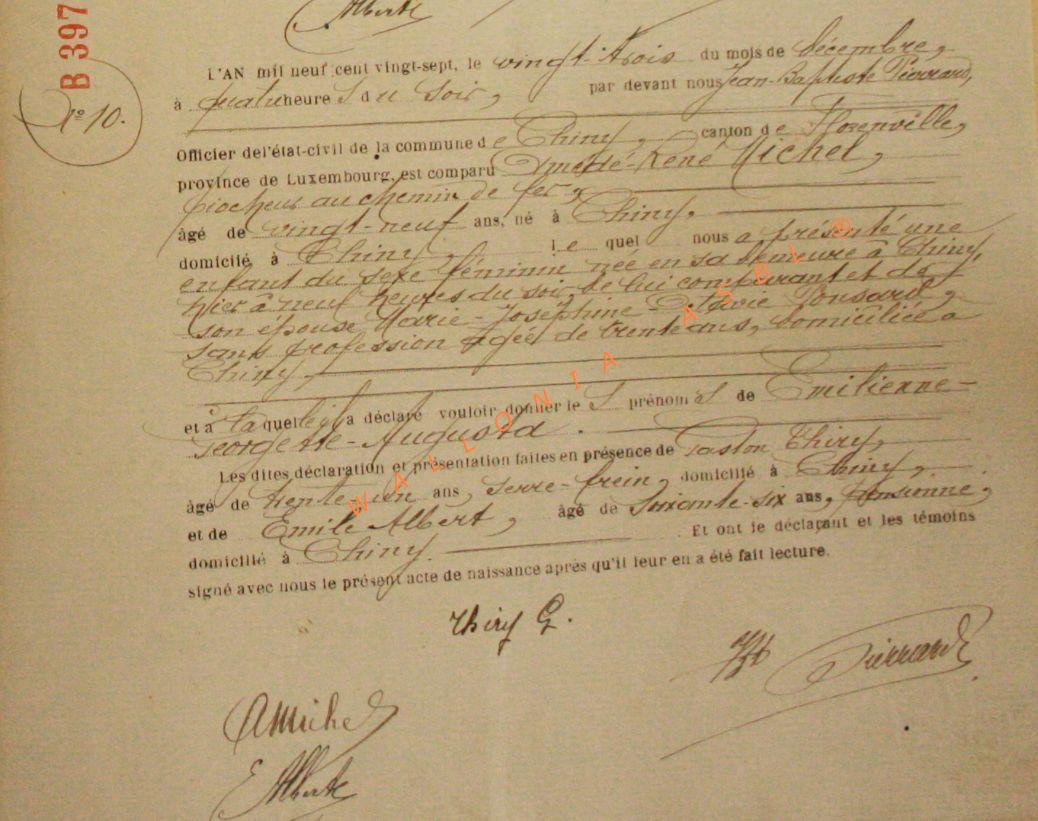 Alberte
B 397
N° 10.
L'AN mil neuf cent vingt-sept, le vingt-trois du mois de Décembre,
à quatre heures du soir, par devant nous Jean-Baptiste Pierrard,
Officier de l'état-civil de la commune de Chiny, canton de Florenville,
province de Luxembourg, est comparu Amédé-René Michel,
piocheur au chemin de fer,
âgé de vingt-neuf ans, né à Chiny,
domicilié à Chiny, lequel nous a présenté une
enfant du sexe féminin née en sa demeure à Chiny,
hier à neuf heures du soir, de lui comparant et de
son épouse Marie-Joséphine-Octavie Ponsard,
sans profession âgée de trente ans, domiciliée à
Chiny,
et à laquelle il a déclaré vouloir donner les prénoms de Emilienne-
Georgette-Augusta.
Les dites déclaration et présentation faites en présence de Gaston Thiry,
âgé de trente-un ans, serre-frein, domicilié à Chiny,
et de Emile Albert, âgé de soixante-six ans, pensionné,
domicilié à Chiny. Et ont le déclarant et les témoins
signé avec nous le présent acte de naissance après qu'il leur en a été fait lecture.
Thiry G.
JB Pierrard
AMichel
E Alberte
WALLONIA ASBL ®